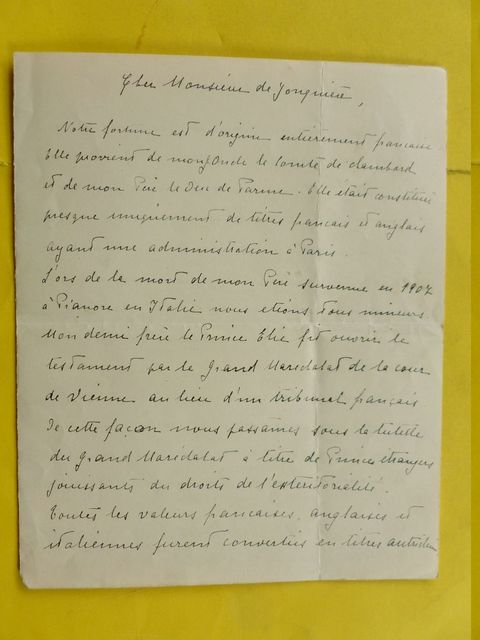 Cher Monsieur de Jonquière,
Notre fortune est d'origine entièrement française.
Elle provient de mon Oncle le comte de Chambord
et de mon Père le Duc de Parme. Elle était constituée
presque uniquement de titres français et anglais
ayant une administration à Paris.
Lors de la mort de mon Père survenue en 1907
à Pianore en Italie nous étions tous mineurs.
Mon demi frère le Prince Elie fit ouvrir le
testament par le Grand Maréchalat de la cour
de Vienne au lieu d'un tribunal français
De cette façon nous passâmes sous la tutelle
du Grand Maréchalat à titre de Princes étrangers
jouissants du droits de l'exteritorialité.
Toutes les valeurs françaises, anglaises et
italiennes furent converties en titres autrichiens